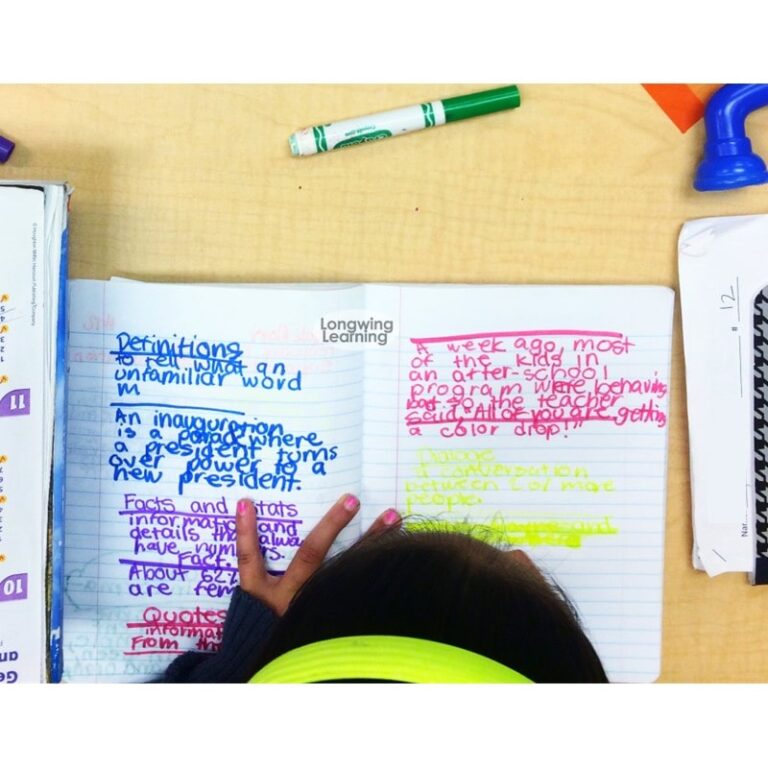 Longwing
Learning
Definitions
to tell what an
unfamiliar word
m
An inauguration
is a parade where
a president turns
over power to a
new president.
Facts and Stats
information and
details that alwa
have numbers.
Fact:
About 62%
are fem
Quotes
informat
From th
A week ago, most
of the kids in
an after-school
program were behaving
bad so the teacher
said "All of you are getting
a color drop!"
Dialoge
A conversation
between 2 or more
people.
and
# 12
Nar
11
10
Ge
an